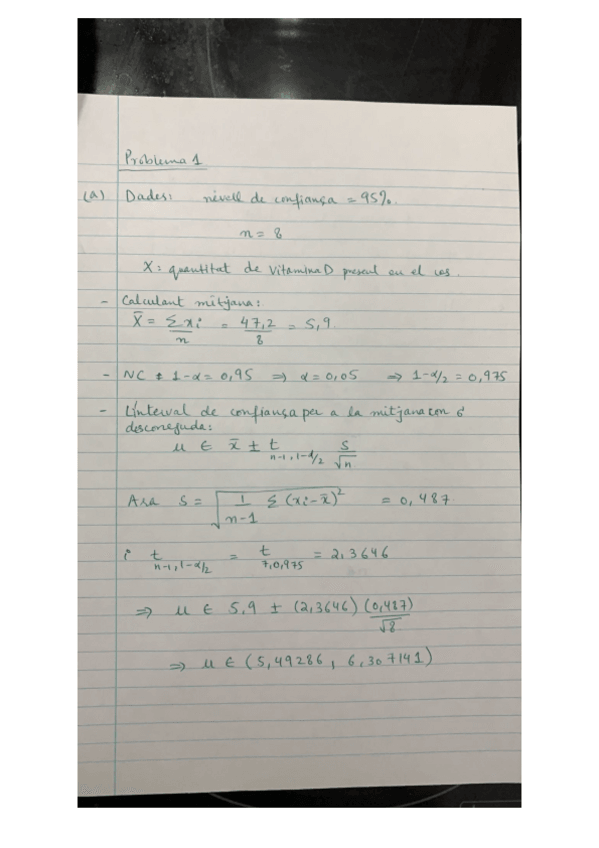 Problema 1
(a) Dades: nivell de confiança = 95%.
n = 8
X: quantitat de vitamina D present en el cos.
- Calculant mitjana:
X̄ = Σxi / n = 47,2 / 8 = 5,9
- NC = 1-α = 0,95 ⇒ α = 0,05 ⇒ 1-α/2 = 0,975
- L'interval de confiança per a la mitjana con σ
desconeguda:
μ ∈ x̄ ± t n-1, 1-α/2 S/√n
Ara S = √(1/(n-1) Σ(xi-x̄)²) = 0,487
i t n-1, 1-α/2 = t 7, 0,975 = 2,3646
⇒ μ ∈ 5,9 ± (2,3646) (0,487)/√8
⇒ μ ∈ (5,49286, 6,307141)